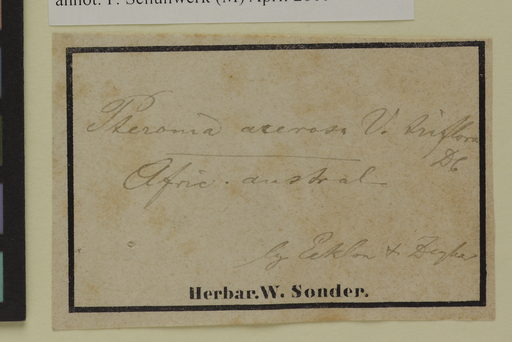 annot. P. Schuhwerk (M) April
Pteronia acerosa V. triflora
DC
Afric. austral
by Ecklon & Zeyher
Herbar. W. Sonder.